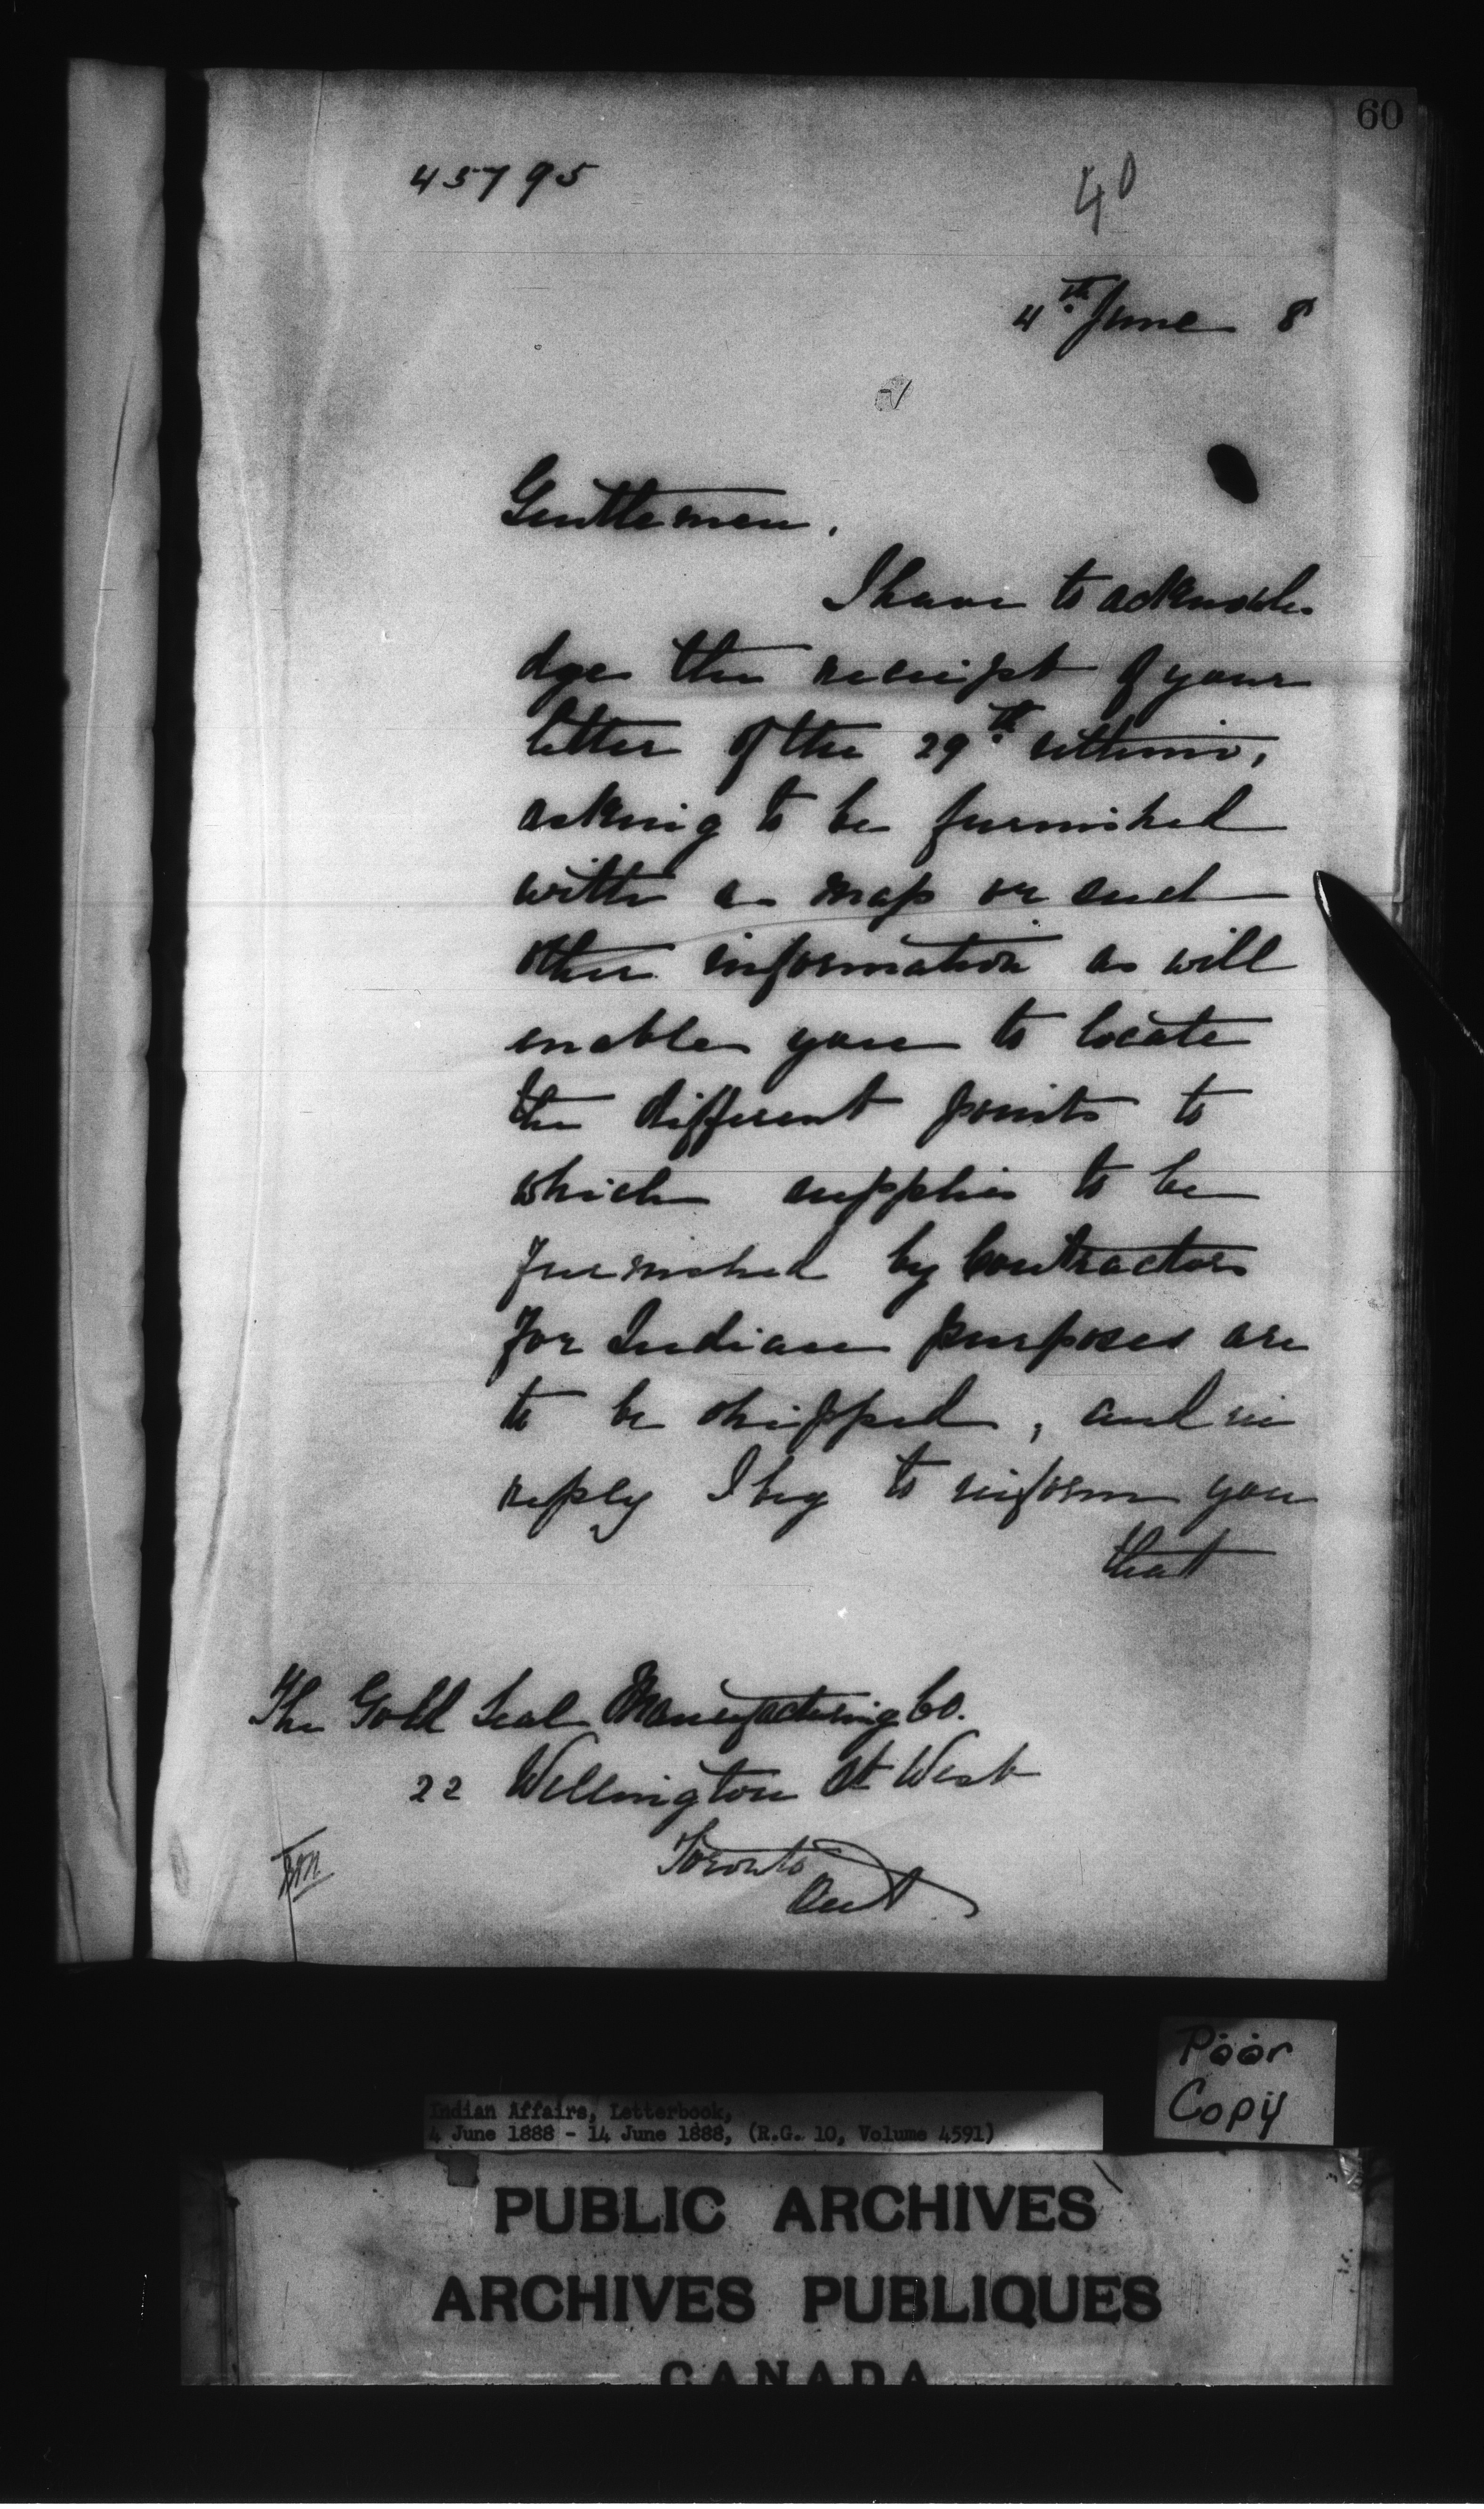 60
45795
40
4th June 8
Gentlemen,
I have to acknowle-
dge the receipt of your
letter of the 29th ultimo,
asking to be furnished
with a map or such
other information as will
enable you to locate
the different points to
which supplies to be
furnished by Contractors
for Indian purposes are
to be shipped, and in
reply I beg to inform you
that
The Gold Seal Manufacturing Co.
22 Wellington St West
Toronto
Ont
Poor
Copy
Indian Affairs, Letterbook,
4 June 1888 - 14 June 1888, (R.G. 10, Volume 4591)
PUBLIC ARCHIVES
ARCHIVES PUBLIQUES
CANADA